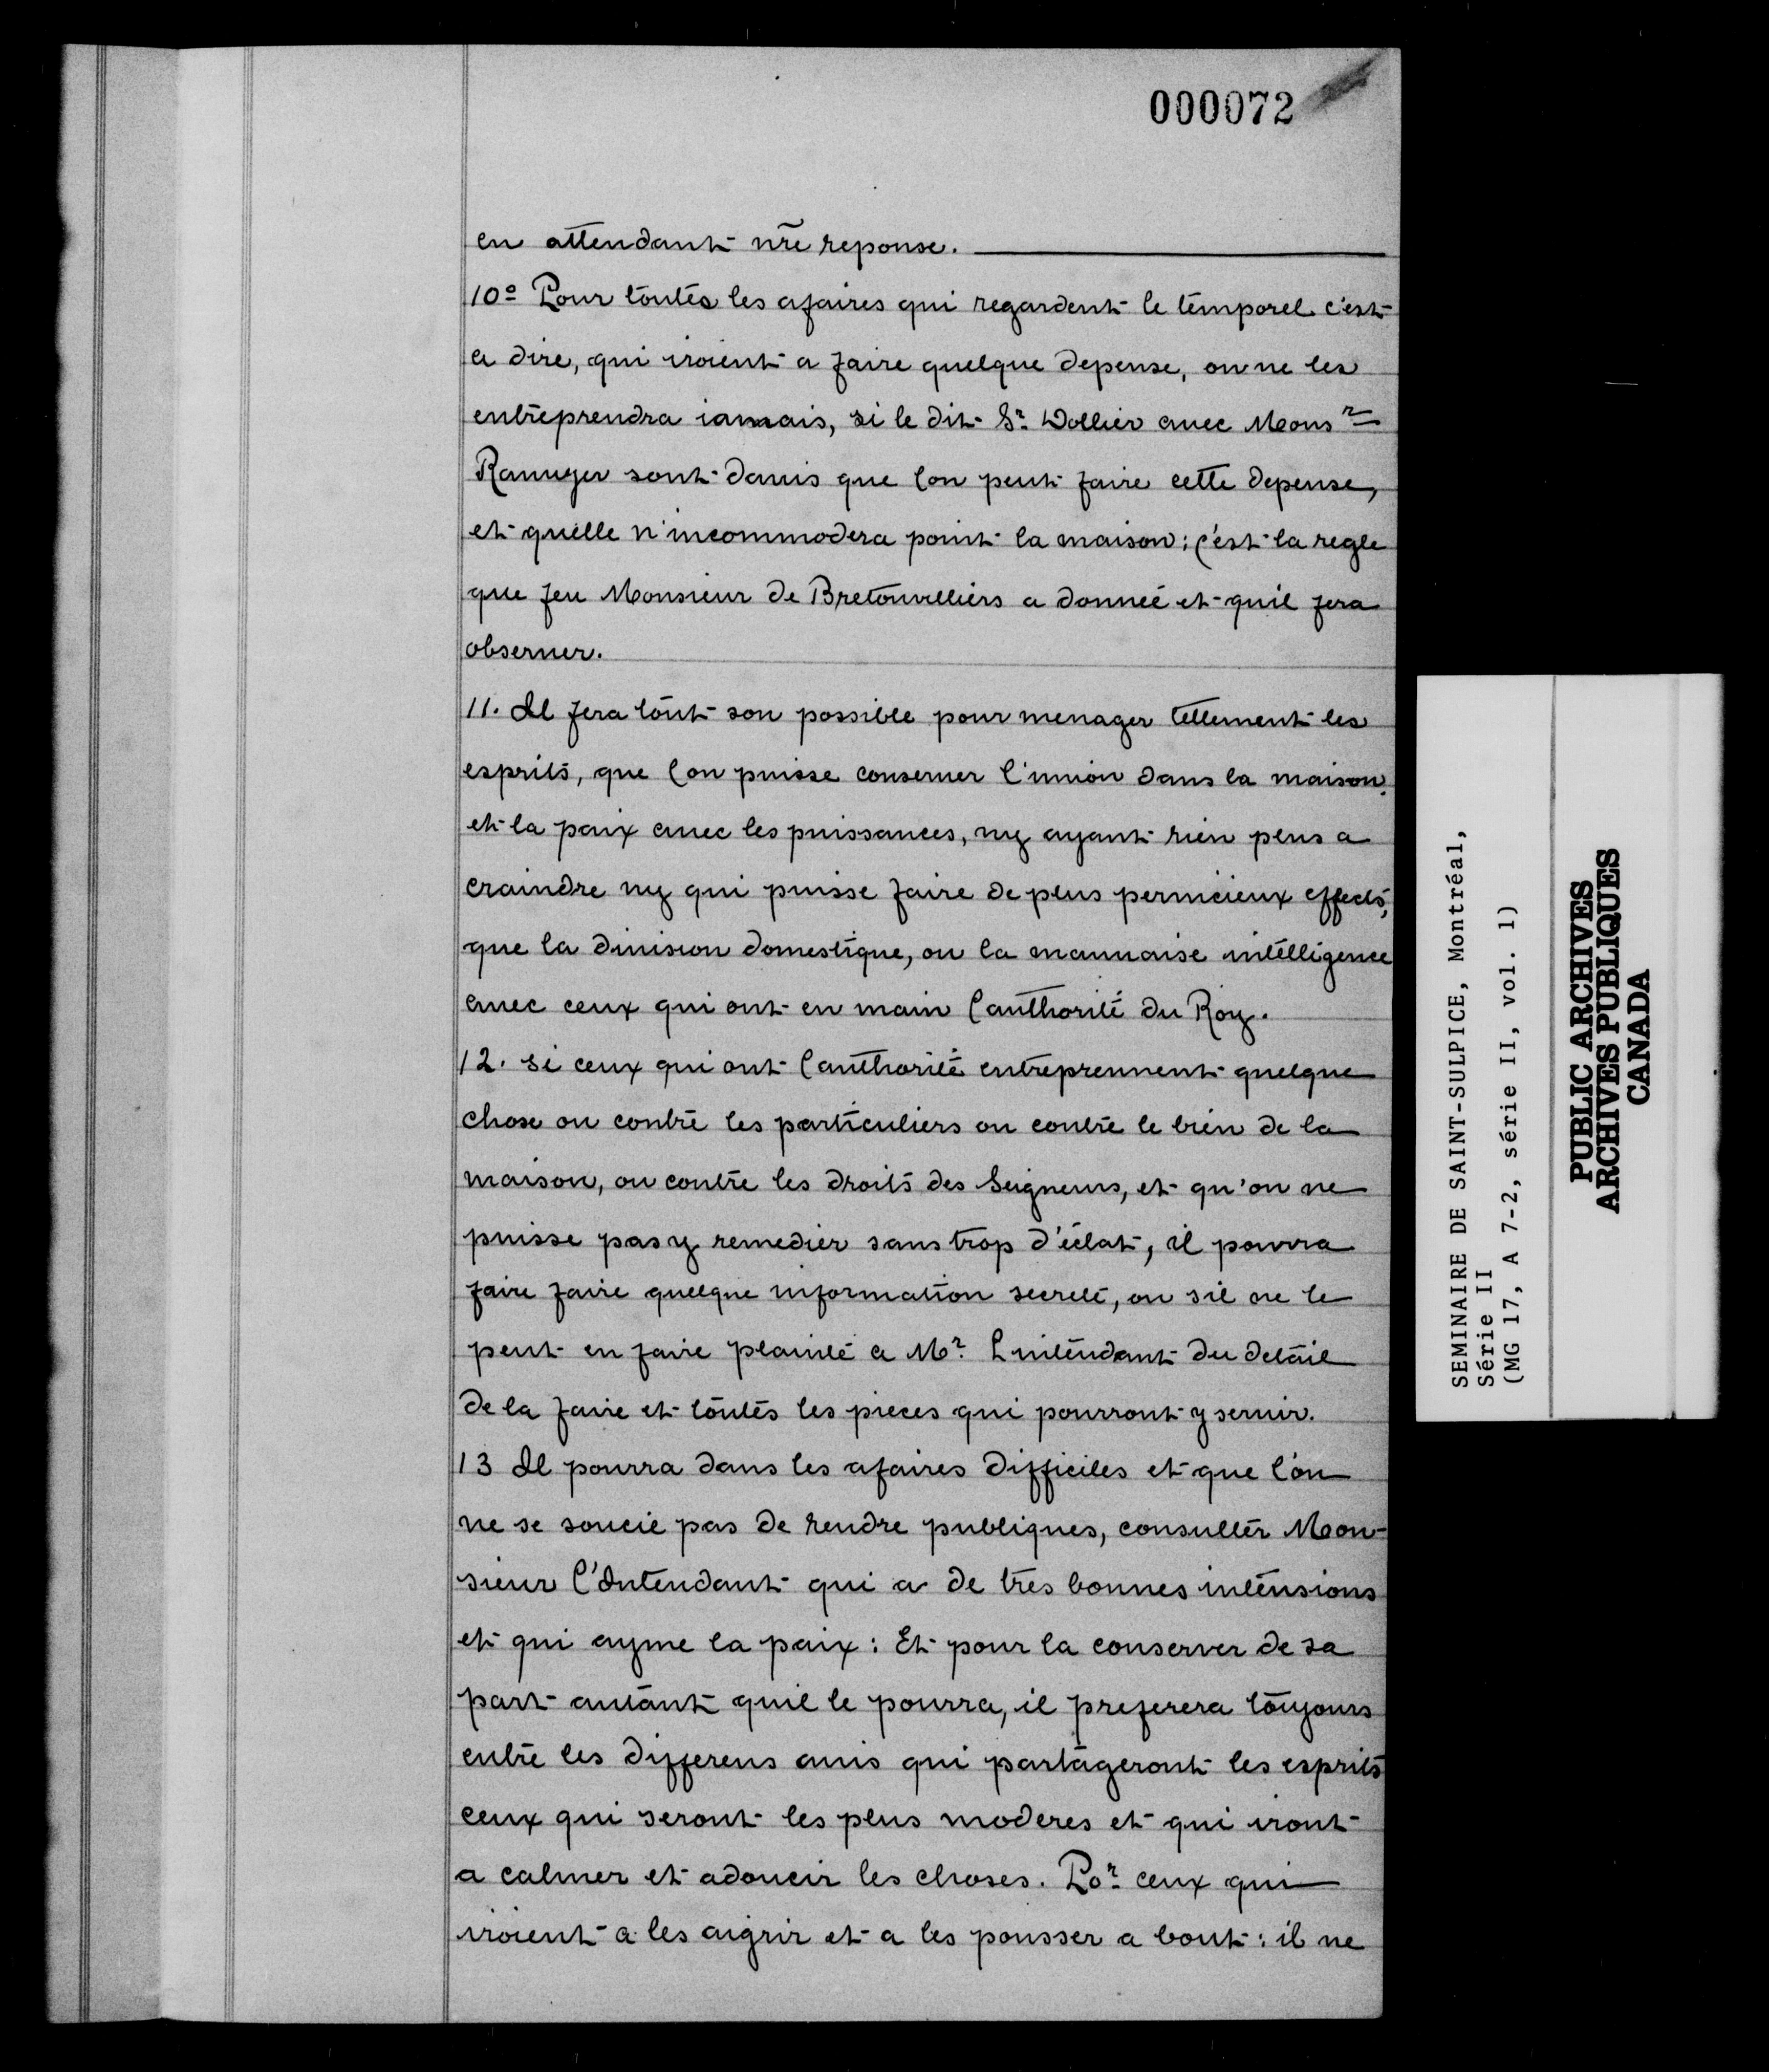 000072
en attendant nr̃e reponse.
10º Pour toutes les afaires qui regardent le temporel c'est
a dire, qui iroient a faire quelque depense, on ne les
entreprendra iamais, si le dit Sr. Dollier auec Monsr
Ranuyer sont dauis que lon peut faire cette depense,
et quelle n'incommodera point la maison: c'est la regle
que feu Monsieur de Bretonvilliers a donnée et quil fera
obseruer.
11. Il fera tout son possible pour menager tellement les
esprits, que lon puisse conseruer l'union dans la maison,
et la paix auec les puissances, ny ayant rien plus a
craindre ny qui puisse faire de plus pernicieux effects,
que la diuision domestique, ou la mauuaise intelligence
auec ceux qui ont en main lauthorité du Roy.
12. si ceux qui ont lauthorité entreprennent quelque
chose ou contre les particuliers ou contre le bien de la
maison, ou contre les droits des Seigneurs, et qu'on ne
puisse pas y remedier sans trop d'éclat, il pourra
faire faire quelque information secrete, ou sil ne le
peut en faire plainte a Mr. Lintendant du detail
de la faire et toutes les pieces qui pourront y seruir.
13 Il pourra dans les afaires difficiles et que l'on
ne se soucie pas de rendre publiques, consulter Mon-
sieur l'Intendant qui a de tres bonnes intensions
et qui ayme la paix: Et pour la conserver de sa
part autant quil le pourra, il preferera toujours
entre les differens auis qui partageront les esprits
ceux qui seront les plus moderes et qui iront
a calmer et adoucir les choses. Por. ceux qui
iroient a les aigrir et a les pousser a bout: il ne
SEMINAIRE DE SAINT-SULPICE, Montréal,
Série II
(MG 17, A 7-2, série II, vol. 1)
PUBLIC ARCHIVES
ARCHIVES PUBLIQUES
CANADA